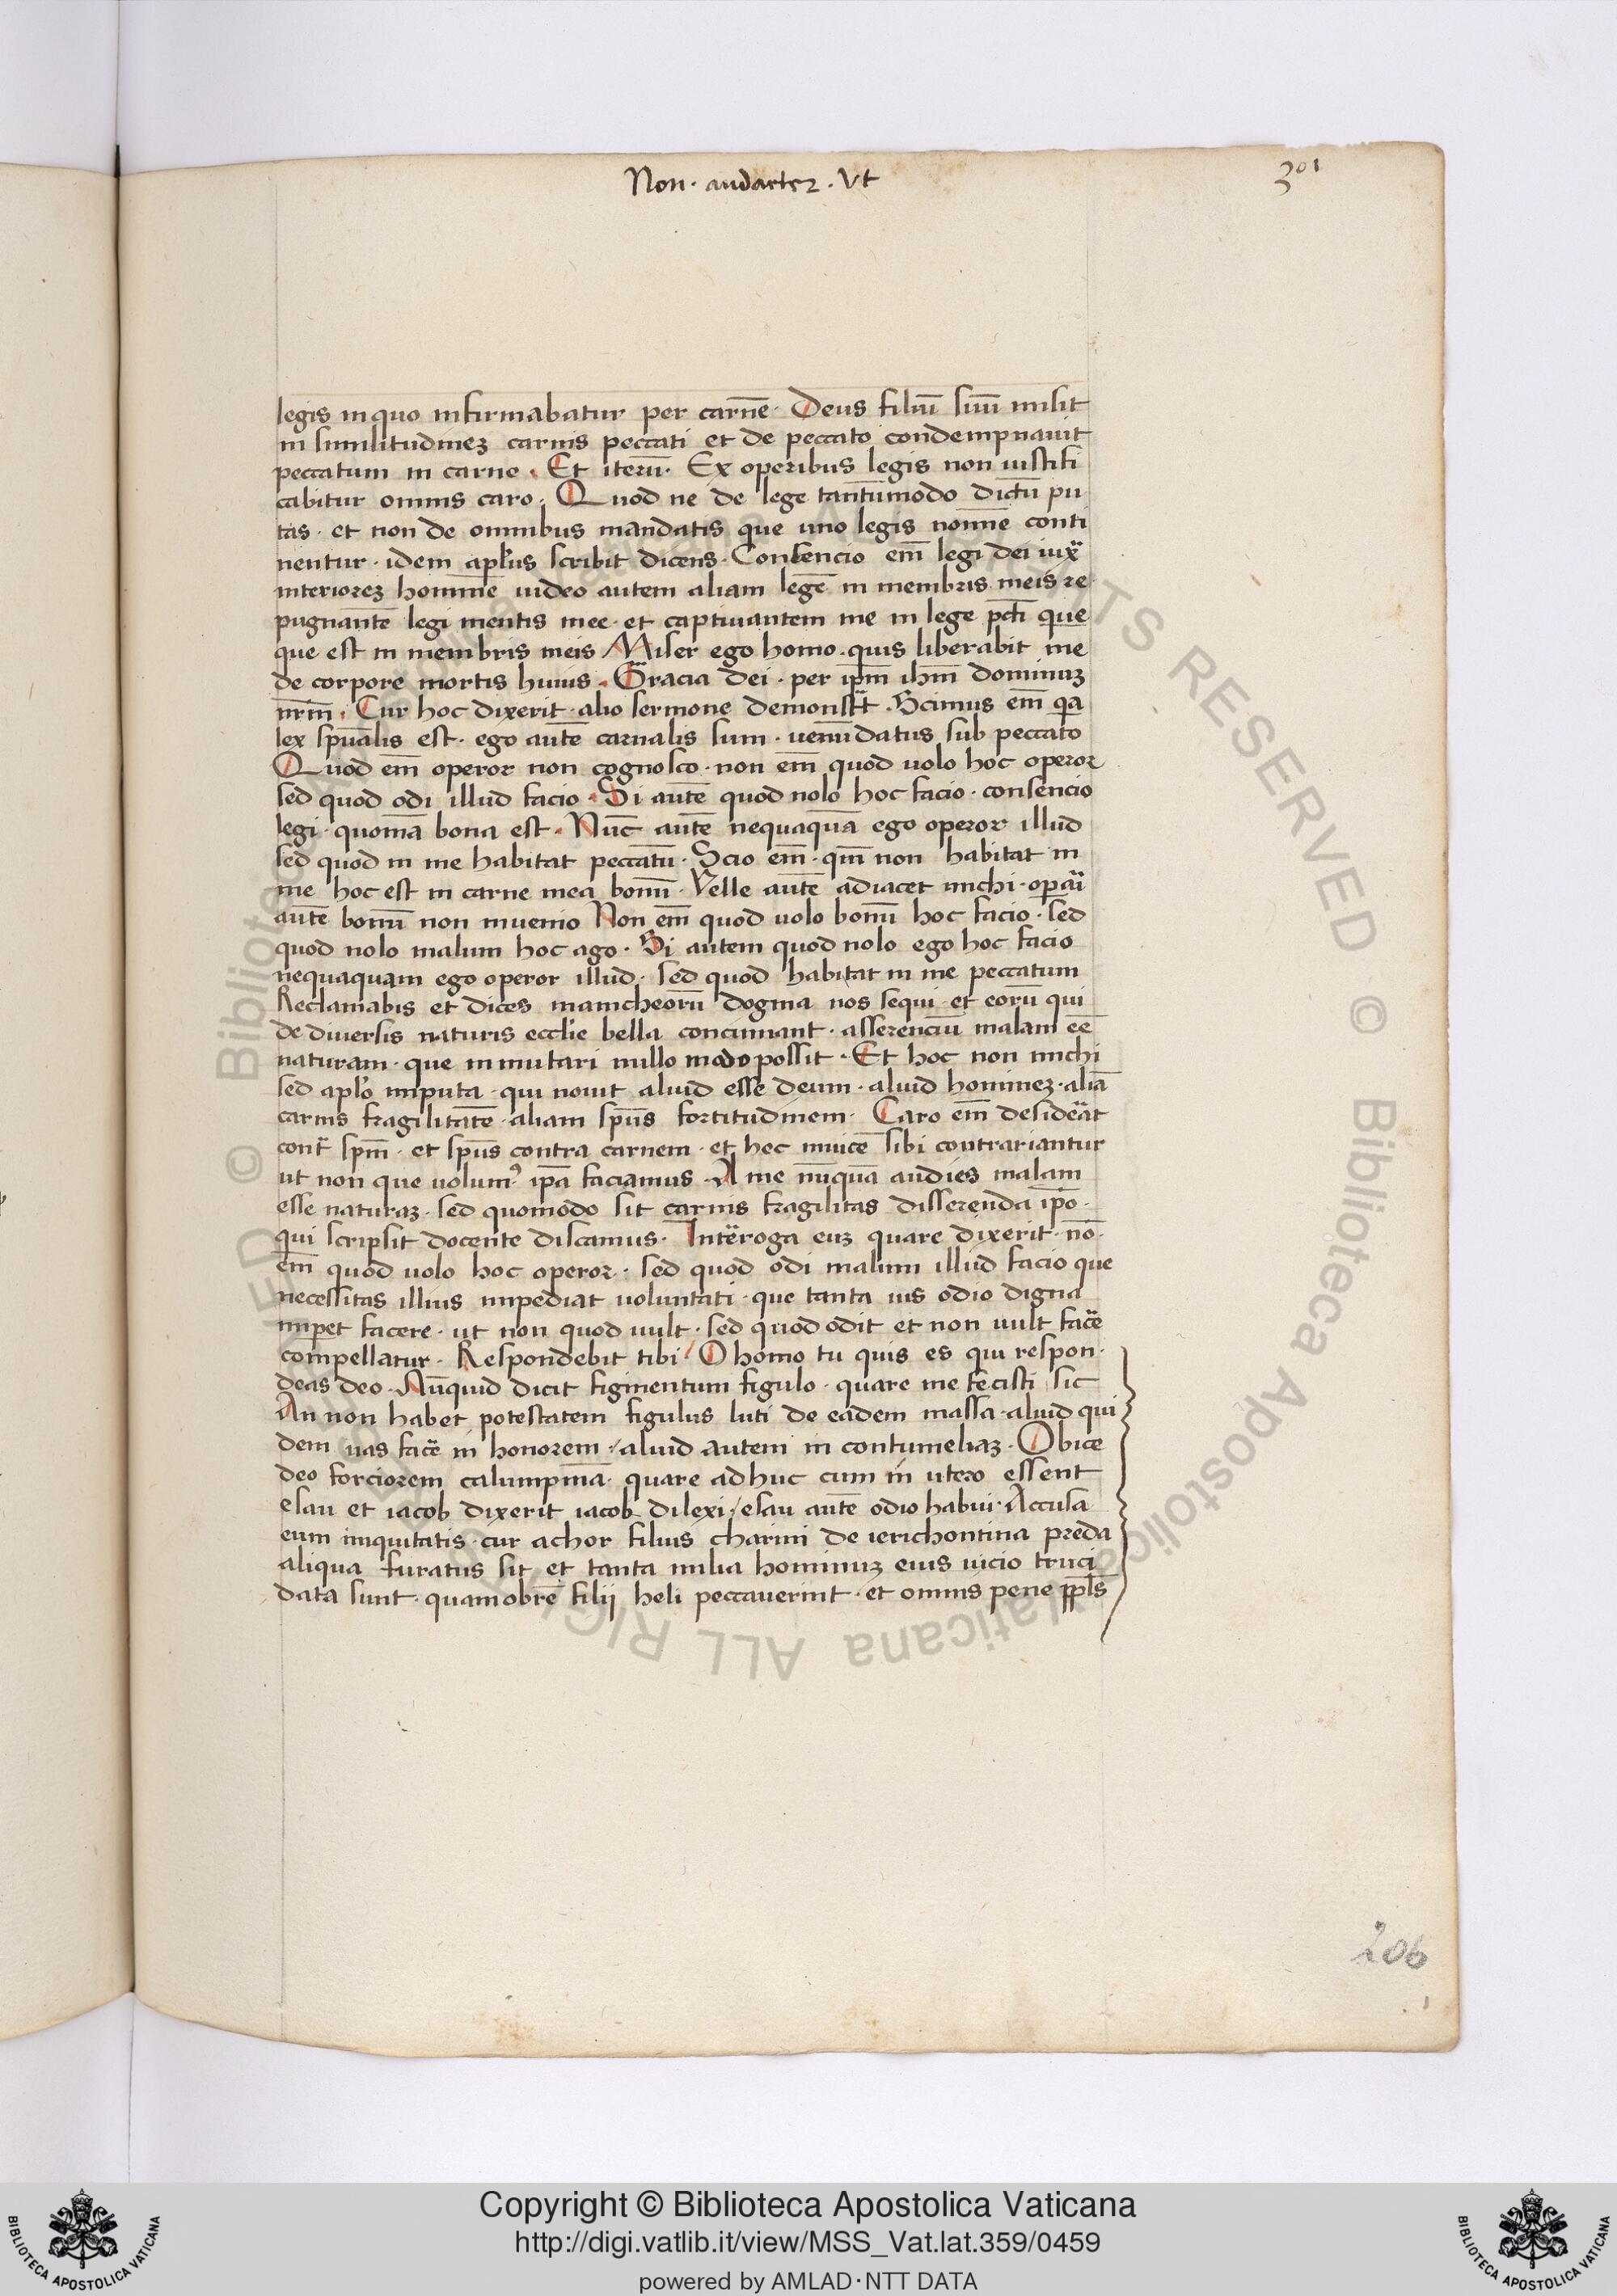 Non · audacter · Vt
301
legis in quo infirmabatur per carnē · Deus filiū suū misit
in similitudinez carnis peccati et de peccato condempnauit
peccatum in carne · Et iterū · Ex operibus legis non iustifi
cabitur omnis caro · Quod ne de lege tantūmodo dictū pu
tas · et non de omnibus mandatis que uno legis nomīe conti
nentur · idem apl̄us scribit dicens · Consencio em̄ legi dei iuxa
interiorez hominē uideo autem aliam legē in membris meis re
pugnantē legi mentis mee · et captiuantem me in lege pcti que
que est in membris meis Miser ego homo · quis liberabit me
de corpore mortis huius · Gracia dei · per ip̄m ih̄m dominuz
nr̄m · Cur hoc dixerit · alio sermone demonstrat · Scimus em̄ qa
lex spūalis est · ego autē carnalis sum · uenūdatus sub peccato
Quod em̄ operor non cognosco · non em̄ quod uolo hoc operor
sed quod odi illud facio · Si autē quod nolo hoc facio · consencio
legi · quoniā bona est · Nūc autē nequaquā ego operor illud
sed quod in me habitat peccatū · Scio em̄ · qm̄ non habitat in
me hoc est in carne mea bonū · Velle autē adiacet michi · opari
autē bonū non inuenio Non em̄ quod uolo bonū hoc facio · sed
quod nolo malum hoc ago · Si autem quod nolo ego hoc facio
nequaquam ego operor illud · sed quod habitat in me peccatum
Reclamabis et dices manicheorū dogma nos sequi · et eorū qui
de diuersis naturis eccl̄ie bella concinnant · asserenciū malam eē
naturam · que inmutari nullo modo possit · Et hoc non michi
sed apl̄o imputa · qui nouit aliud esse deum · aliud hominez · aliā
carnis fragilitatē · aliam spūs fortitudinem · Caro em̄ desiderat
cont̄ spm̄ · et spūs contra carnem · et hec inuicē sibi contrariantur
ut non que uolum9 ip̄a faciamus · A me nūquā audies malam
esse naturaz · sed quomodo sit carnis fragilitas disserenda ip̄o ·
qui scripsit docente discamus · Interoga euz quare dixerit · nō ·
em̄ quod uolo hoc operor · sed quod odi malum illud facio que
necessitas illius impediat voluntati · que tanta uis odio digna
impet facere · ut non quod uult · sed quod odit et non uult facē
compellatur · Respondebit tibi / O homo tu quis es qui respon ·
deas deo · Nūquid dicit figmentum figulo · quare me fecisti sic
An non habet potestatem figulus luti de eadem massa · aliud qui
dem uas facē in honorem · / aliud autem in contumeliaz · Obice
deo forciorem calumpniā · quare adhuc cum in utero essent
esau et iacob dixerit iacob dilexi / esau autē odio habui · Accusa
eum iniquitatis · cur achor filius charmi de ierichontina preda
aliqua furatus sit et tanta milia hominuz eius uicio truci
data sunt · quamobrē filij heli peccauerint · et omnis pene ppl̄s
206
© Biblioteca Apostolica Vaticana ALL RIGHTS RESERVED © Biblioteca Apostolica Vaticana ALL RIGHTS RESERVED
Copyright © Biblioteca Apostolica Vaticana
http://digi.vatlib.it/view/MSS_Vat.lat.359/0459
powered by AMLAD·NTT DATA
BIBLIOTECA APOSTOLICA VATICANA
BIBLIOTECA APOSTOLICA VATICANA